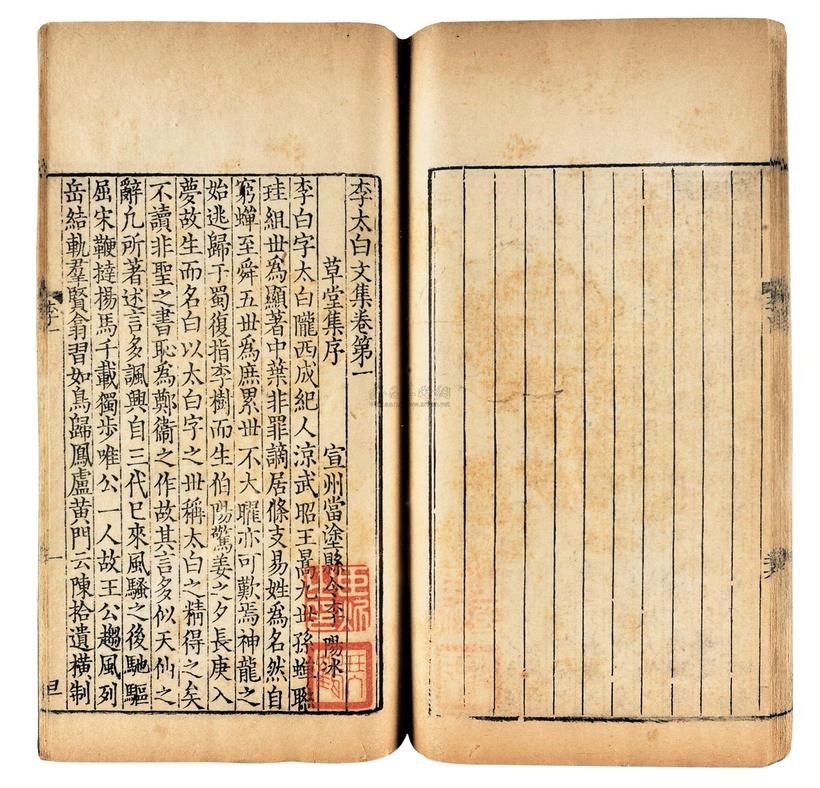 李太白文集卷第一
草堂集序 宣州當塗縣令李陽冰
李白字太白隴西成紀人涼武昭王暠九世孫蟬聯
珪組世爲顯著中葉非罪謫居條支易姓爲名然自
窮蟬至舜五世爲庶累世不大曜亦可歎焉神龍之
始逃歸于蜀復指李樹而生伯陽驚姜之夕長庚入
夢故生而名白以太白字之世稱太白之精得之矣
不讀非聖之書恥爲鄭衞之作故其言多似天仙之
辭凡所著述言多諷興自三代已來風騷之後馳驅
屈宋鞭撻揚馬千載獨步唯公一人故王公趨風列
岳結軌羣賢翕習如鳥歸鳳盧黃門云陳拾遺橫制